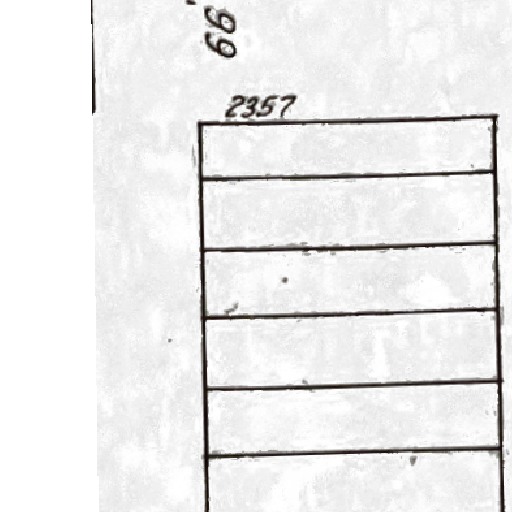 66
2357